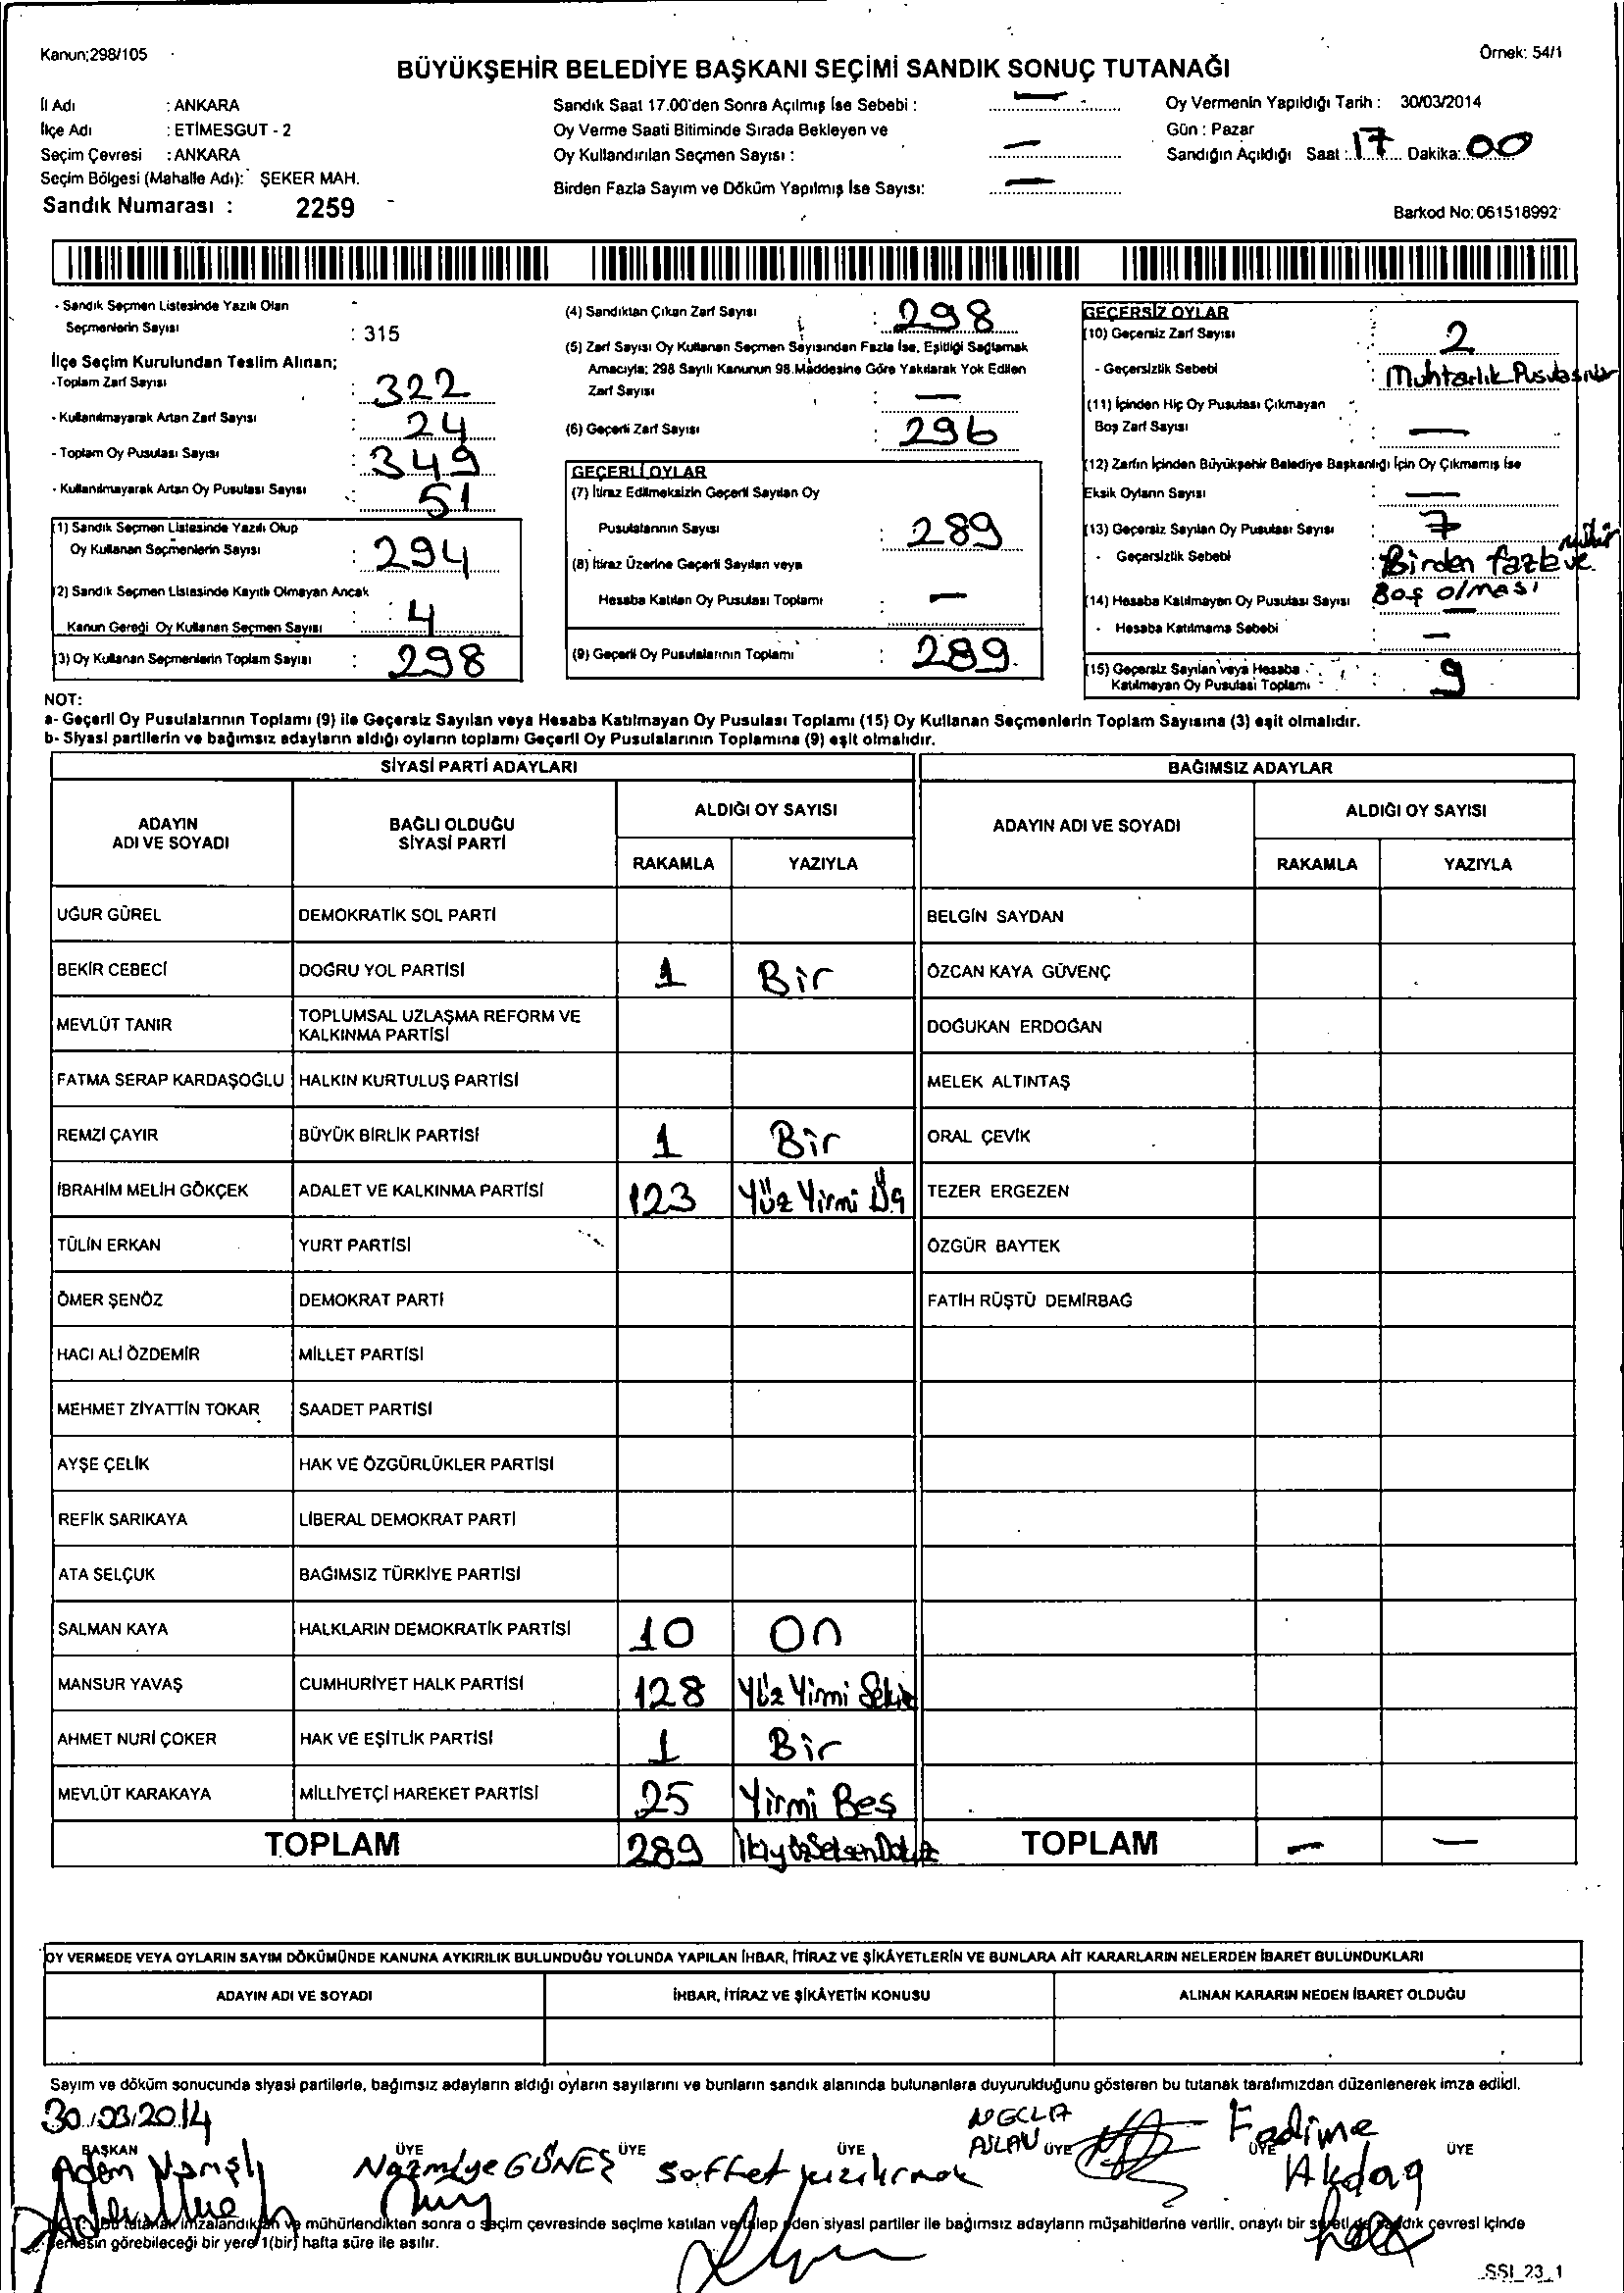 Kanun;298/105
Örnek: 54/1
BÜYÜKŞEHİR BELEDİYE BAŞKANI SEÇİMİ SANDIK SONUÇ TUTANAĞI
İl Adı : ANKARA
İlçe Adı : ETİMESGUT - 2
Seçim Çevresi : ANKARA
Seçim Bölgesi (Mahalle Adı): ŞEKER MAH.
Sandık Numarası : 2259
Sandık Saat 17.00'den Sonra Açılmış İse Sebebi : —
Oy Verme Saati Bitiminde Sırada Bekleyen ve
Oy Kullandırılan Seçmen Sayısı : —
Birden Fazla Sayım ve Döküm Yapılmış İse Sayısı: —
Oy Vermenin Yapıldığı Tarih : 30/03/2014
Gün : Pazar
Sandığın Açıldığı Saat : 17 Dakika: 00
Barkod No: 061518992
- Sandık Seçmen Listesinde Yazılı Olan
Seçmenlerin Sayısı : 315
İlçe Seçim Kurulundan Teslim Alınan;
-Toplam Zarf Sayısı : 322
- Kullanılmayarak Artan Zarf Sayısı : 24
- Toplam Oy Pusulası Sayısı : 349
- Kullanılmayarak Artan Oy Pusulası Sayısı : 51
(1) Sandık Seçmen Listesinde Yazılı Olup
Oy Kullanan Seçmenlerin Sayısı : 294
(2) Sandık Seçmen Listesinde Kayıtlı Olmayan Ancak
Kanun Gereği Oy Kullanan Seçmen Sayısı : 4
(3) Oy Kullanan Seçmenlerin Toplam Sayısı : 298
(4) Sandıktan Çıkan Zarf Sayısı : 298
(5) Zarf Sayısı Oy Kullanan Seçmen Sayısından Fazla İse, Eşitliği Sağlamak
Amacıyla; 298 Sayılı Kanunun 98.Maddesine Göre Yakılarak Yok Edilen
Zarf Sayısı : —
(6) Geçerli Zarf Sayısı : 296
GEÇERLİ OYLAR
(7) İtiraz Edilmeksizin Geçerli Sayılan Oy
Pusulalarının Sayısı : 289
(8) İtiraz Üzerine Geçerli Sayılan veya
Hesaba Katılan Oy Pusulası Toplamı : —
(9) Geçerli Oy Pusulalarının Toplamı : 289
GEÇERSİZ OYLAR
(10) Geçersiz Zarf Sayısı : 2
- Geçersizlik Sebebi : Muhtarlık
(11) İçinden Hiç Oy Pusulası Çıkmayan
Boş Zarf Sayısı : —
(12) Zarfın İçinden Büyükşehir Belediye Başkanlığı İçin Oy Çıkmamış İse
Eksik Oyların Sayısı : —
(13) Geçersiz Sayılan Oy Pusulası Sayısı : 7
- Geçersizlik Sebebi : Birden fazla mühür ve
Boş olması
(14) Hesaba Katılmayan Oy Pusulası Sayısı : —
- Hesaba Katılmama Sebebi : —
(15) Geçersiz Sayılan veya Hesaba
Katılmayan Oy Pusulası Toplamı : 9
NOT:
a- Geçerli Oy Pusulalarının Toplamı (9) ile Geçersiz Sayılan veya Hesaba Katılmayan Oy Pusulası Toplamı (15) Oy Kullanan Seçmenlerin Toplam Sayısına (3) eşit olmalıdır.
b- Siyasi partilerin ve bağımsız adayların aldığı oyların toplamı Geçerli Oy Pusulalarının Toplamına (9) eşit olmalıdır.
SİYASİ PARTİ ADAYLARI
BAĞIMSIZ ADAYLAR
ADAYIN ADI VE SOYADI
BAĞLI OLDUĞU SİYASİ PARTİ
ALDIĞI OY SAYISI
RAKAMLA YAZIYLA
ADAYIN ADI VE SOYADI
ALDIĞI OY SAYISI
RAKAMLA YAZIYLA
UĞUR GÜREL DEMOKRATİK SOL PARTİ BELGİN SAYDAN
BEKİR CEBECİ DOĞRU YOL PARTİSİ 1 Bir ÖZCAN KAYA GÜVENÇ
MEVLÜT TANIR TOPLUMSAL UZLAŞMA REFORM VE KALKINMA PARTİSİ DOĞUKAN ERDOĞAN
FATMA SERAP KARDAŞOĞLU HALKIN KURTULUŞ PARTİSİ MELEK ALTINTAŞ
REMZİ ÇAYIR BÜYÜK BİRLİK PARTİSİ 1 Bir ORAL ÇEVİK
İBRAHİM MELİH GÖKÇEK ADALET VE KALKINMA PARTİSİ 123 Yüz Yirmi Üç TEZER ERGEZEN
TÜLİN ERKAN YURT PARTİSİ ÖZGÜR BAYTEK
ÖMER ŞENÖZ DEMOKRAT PARTİ FATİH RÜŞTÜ DEMİRBAĞ
HACI ALİ ÖZDEMİR MİLLET PARTİSİ
MEHMET ZİYATTİN TOKAR SAADET PARTİSİ
AYŞE ÇELİK HAK VE ÖZGÜRLÜKLER PARTİSİ
REFİK SARIKAYA LİBERAL DEMOKRAT PARTİ
ATA SELÇUK BAĞIMSIZ TÜRKİYE PARTİSİ
SALMAN KAYA HALKLARIN DEMOKRATİK PARTİSİ 10 On
MANSUR YAVAŞ CUMHURİYET HALK PARTİSİ 128 Yüz Yirmi Sekiz
AHMET NURİ ÇOKER HAK VE EŞİTLİK PARTİSİ 1 Bir
MEVLÜT KARAKAYA MİLLİYETÇİ HAREKET PARTİSİ 25 Yirmi Beş
TOPLAM 289 İkiyüzSeksenDokuz TOPLAM — —
OY VERMEDE VEYA OYLARIN SAYIM DÖKÜMÜNDE KANUNA AYKIRILIK BULUNDUĞU YOLUNDA YAPILAN İHBAR, İTİRAZ VE ŞİKÂYETLERİN VE BUNLARA AİT KARARLARIN NELERDEN İBARET BULUNDUKLARI
ADAYIN ADI VE SOYADI İHBAR, İTİRAZ VE ŞİKÂYETİN KONUSU ALINAN KARARIN NEDEN İBARET OLDUĞU
Sayım ve döküm sonucunda siyasi partilerle, bağımsız adayların aldığı oyların sayılarını ve bunların sandık alanında bulunanlara duyurulduğunu gösteren bu tutanak tarafımızdan düzenlenerek imza edildi.
30/03/2014
BAŞKAN ÜYE ÜYE ÜYE ÜYE ÜYE ÜYE
Adem
Nazmiye GÜNEŞ
Saffet Kızılırmak
NECLA ASLAN
Fadime Akdağ
Bu tutanak imzalandıktan ve mühürlendikten sonra o seçim çevresinde seçime katılan ve talep eden siyasi partiler ile bağımsız adayların müşahitlerine verilir, onaylı bir sureti de sandık çevresi içinde
herkesin görebileceği bir yere 1(bir) hafta süre ile asılır.
SSI_23_1